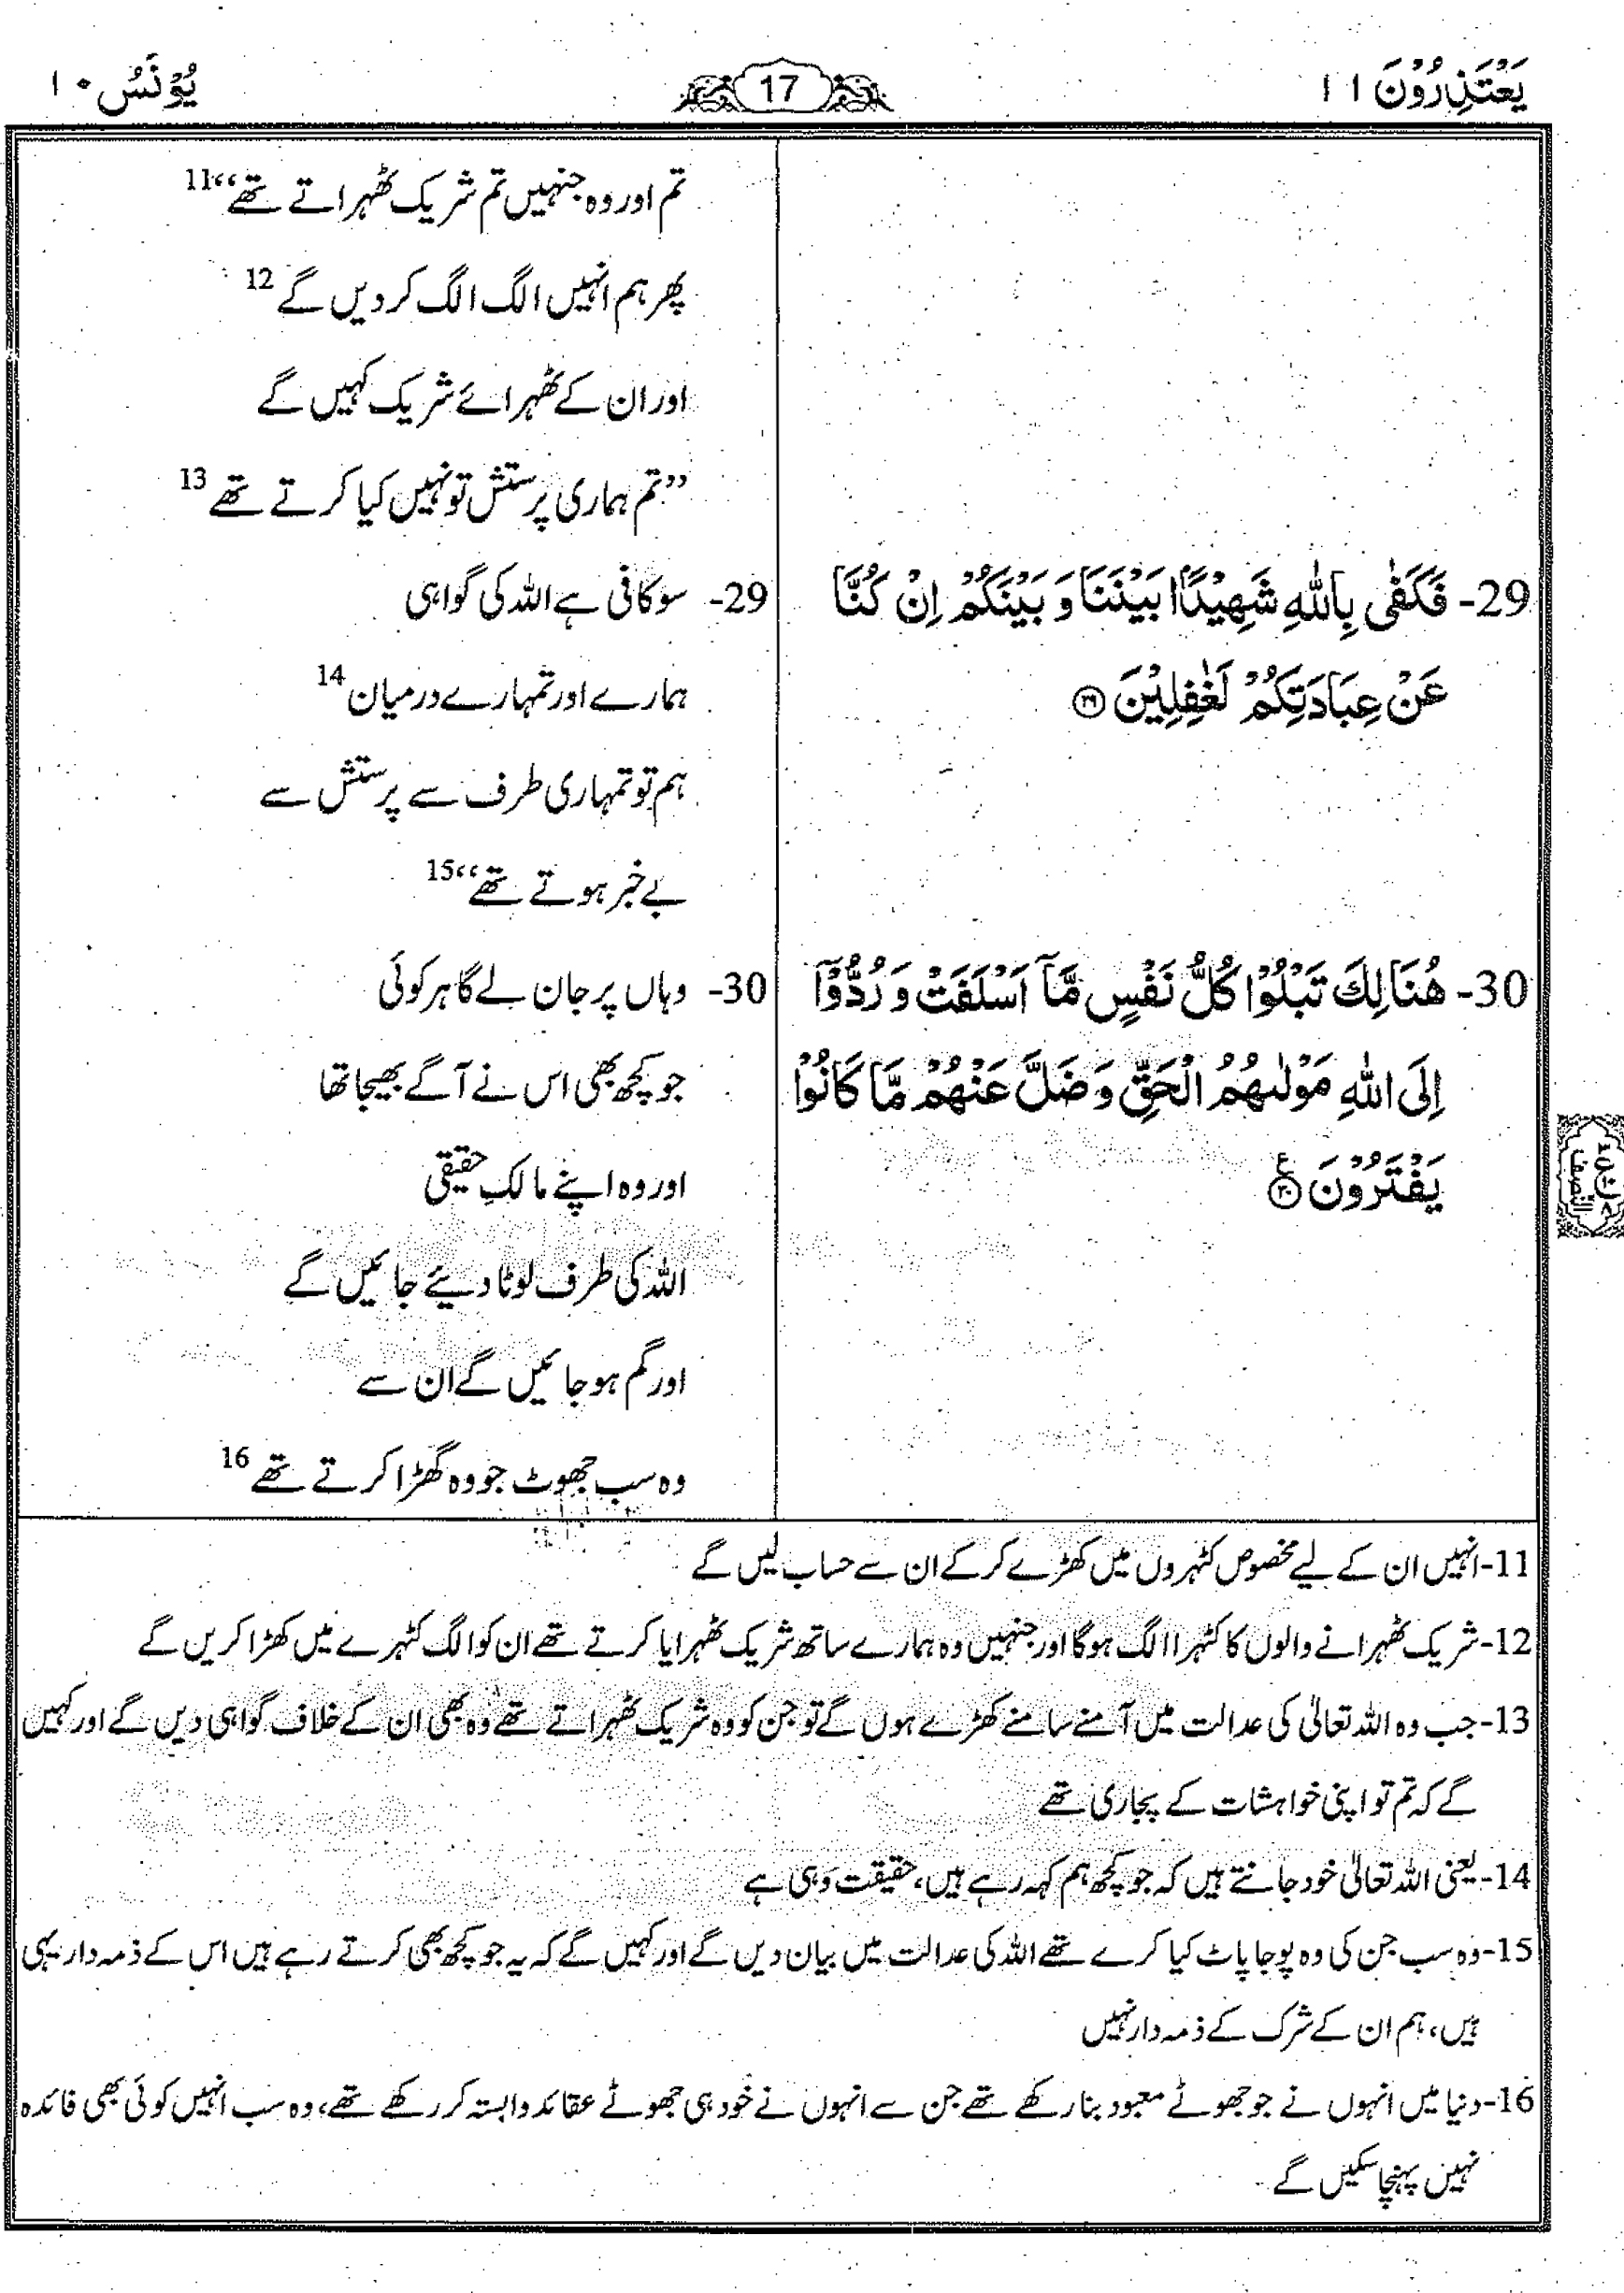 یَعْتَذِرُوْنَ ۱۱
17
یُوْنُس ۱۰
تم اور وہ جنہیں تم شریک ٹھہراتے تھے“ 11
پھر ہم انہیں الگ الگ کردیں گے 12
اور ان کے ٹھہرائے شریک کہیں گے
”تم ہماری پرستش تو نہیں کیا کرتے تھے 13
29- فَكَفٰى بِاللّٰهِ شَهِیْدًۢا بَیْنَنَا وَ بَیْنَكُمْ اِنْ كُنَّا
عَنْ عِبَادَتِكُمْ لَغٰفِلِیْنَ ۲۹
29- سو کافی ہے اللہ کی گواہی
ہمارے اور تمہارے درمیان 14
ہم تو تمہاری طرف سے پرستش سے
بے خبر ہوتے تھے“ 15
30- هُنَالِكَ تَبْلُوْا كُلُّ نَفْسٍ مَّاۤ اَسْلَفَتْ وَ رُدُّوْۤا
اِلَى اللّٰهِ مَوْلٰىهُمُ الْحَقِّ وَ ضَلَّ عَنْهُمْ مَّا كَانُوْا
یَفْتَرُوْنَ ۳۰ ع
30- وہاں پر جان لے گا ہر کوئی
جو کچھ بھی اس نے آگے بھیجا تھا
اور وہ اپنے مالکِ حقیقی
اللہ کی طرف لوٹا دیئے جائیں گے
اور گم ہو جائیں گے ان سے
وہ سب جھوٹ جو وہ گھڑا کرتے تھے 16
النصف
11- انہیں ان کے لیے مخصوص کٹہروں میں کھڑے کر کے ان سے حساب لیں گے
12- شریک ٹھہرانے والوں کا کٹہرا الگ ہوگا اور جنہیں وہ ہمارے ساتھ شریک ٹھہرایا کرتے تھے ان کو الگ کٹہرے میں کھڑا کریں گے
13- جب وہ اللہ تعالیٰ کی عدالت میں آمنے سامنے کھڑے ہوں گے تو جن کو وہ شریک ٹھہراتے تھے وہ بھی ان کے خلاف گواہی دیں گے اور کہیں
گے کہ تم تو اپنی خواہشات کے پجاری تھے
14- یعنی اللہ تعالیٰ خود جانتے ہیں کہ جو کچھ ہم کہہ رہے ہیں، حقیقت وہی ہے
15- وہ سب جن کی وہ پوجا پاٹ کیا کرے تھے اللہ کی عدالت میں بیان دیں گے اور کہیں گے کہ یہ جو کچھ بھی کرتے رہے ہیں اس کے ذمہ دار یہی
ہیں، ہم ان کے شرک کے ذمہ دار نہیں
16- دنیا میں انہوں نے جو جھوٹے معبود بنا رکھے تھے جن سے انہوں نے خود ہی جھوٹے عقائد وابستہ کر رکھے تھے، وہ سب انہیں کوئی بھی فائدہ
نہیں پہنچا سکیں گے